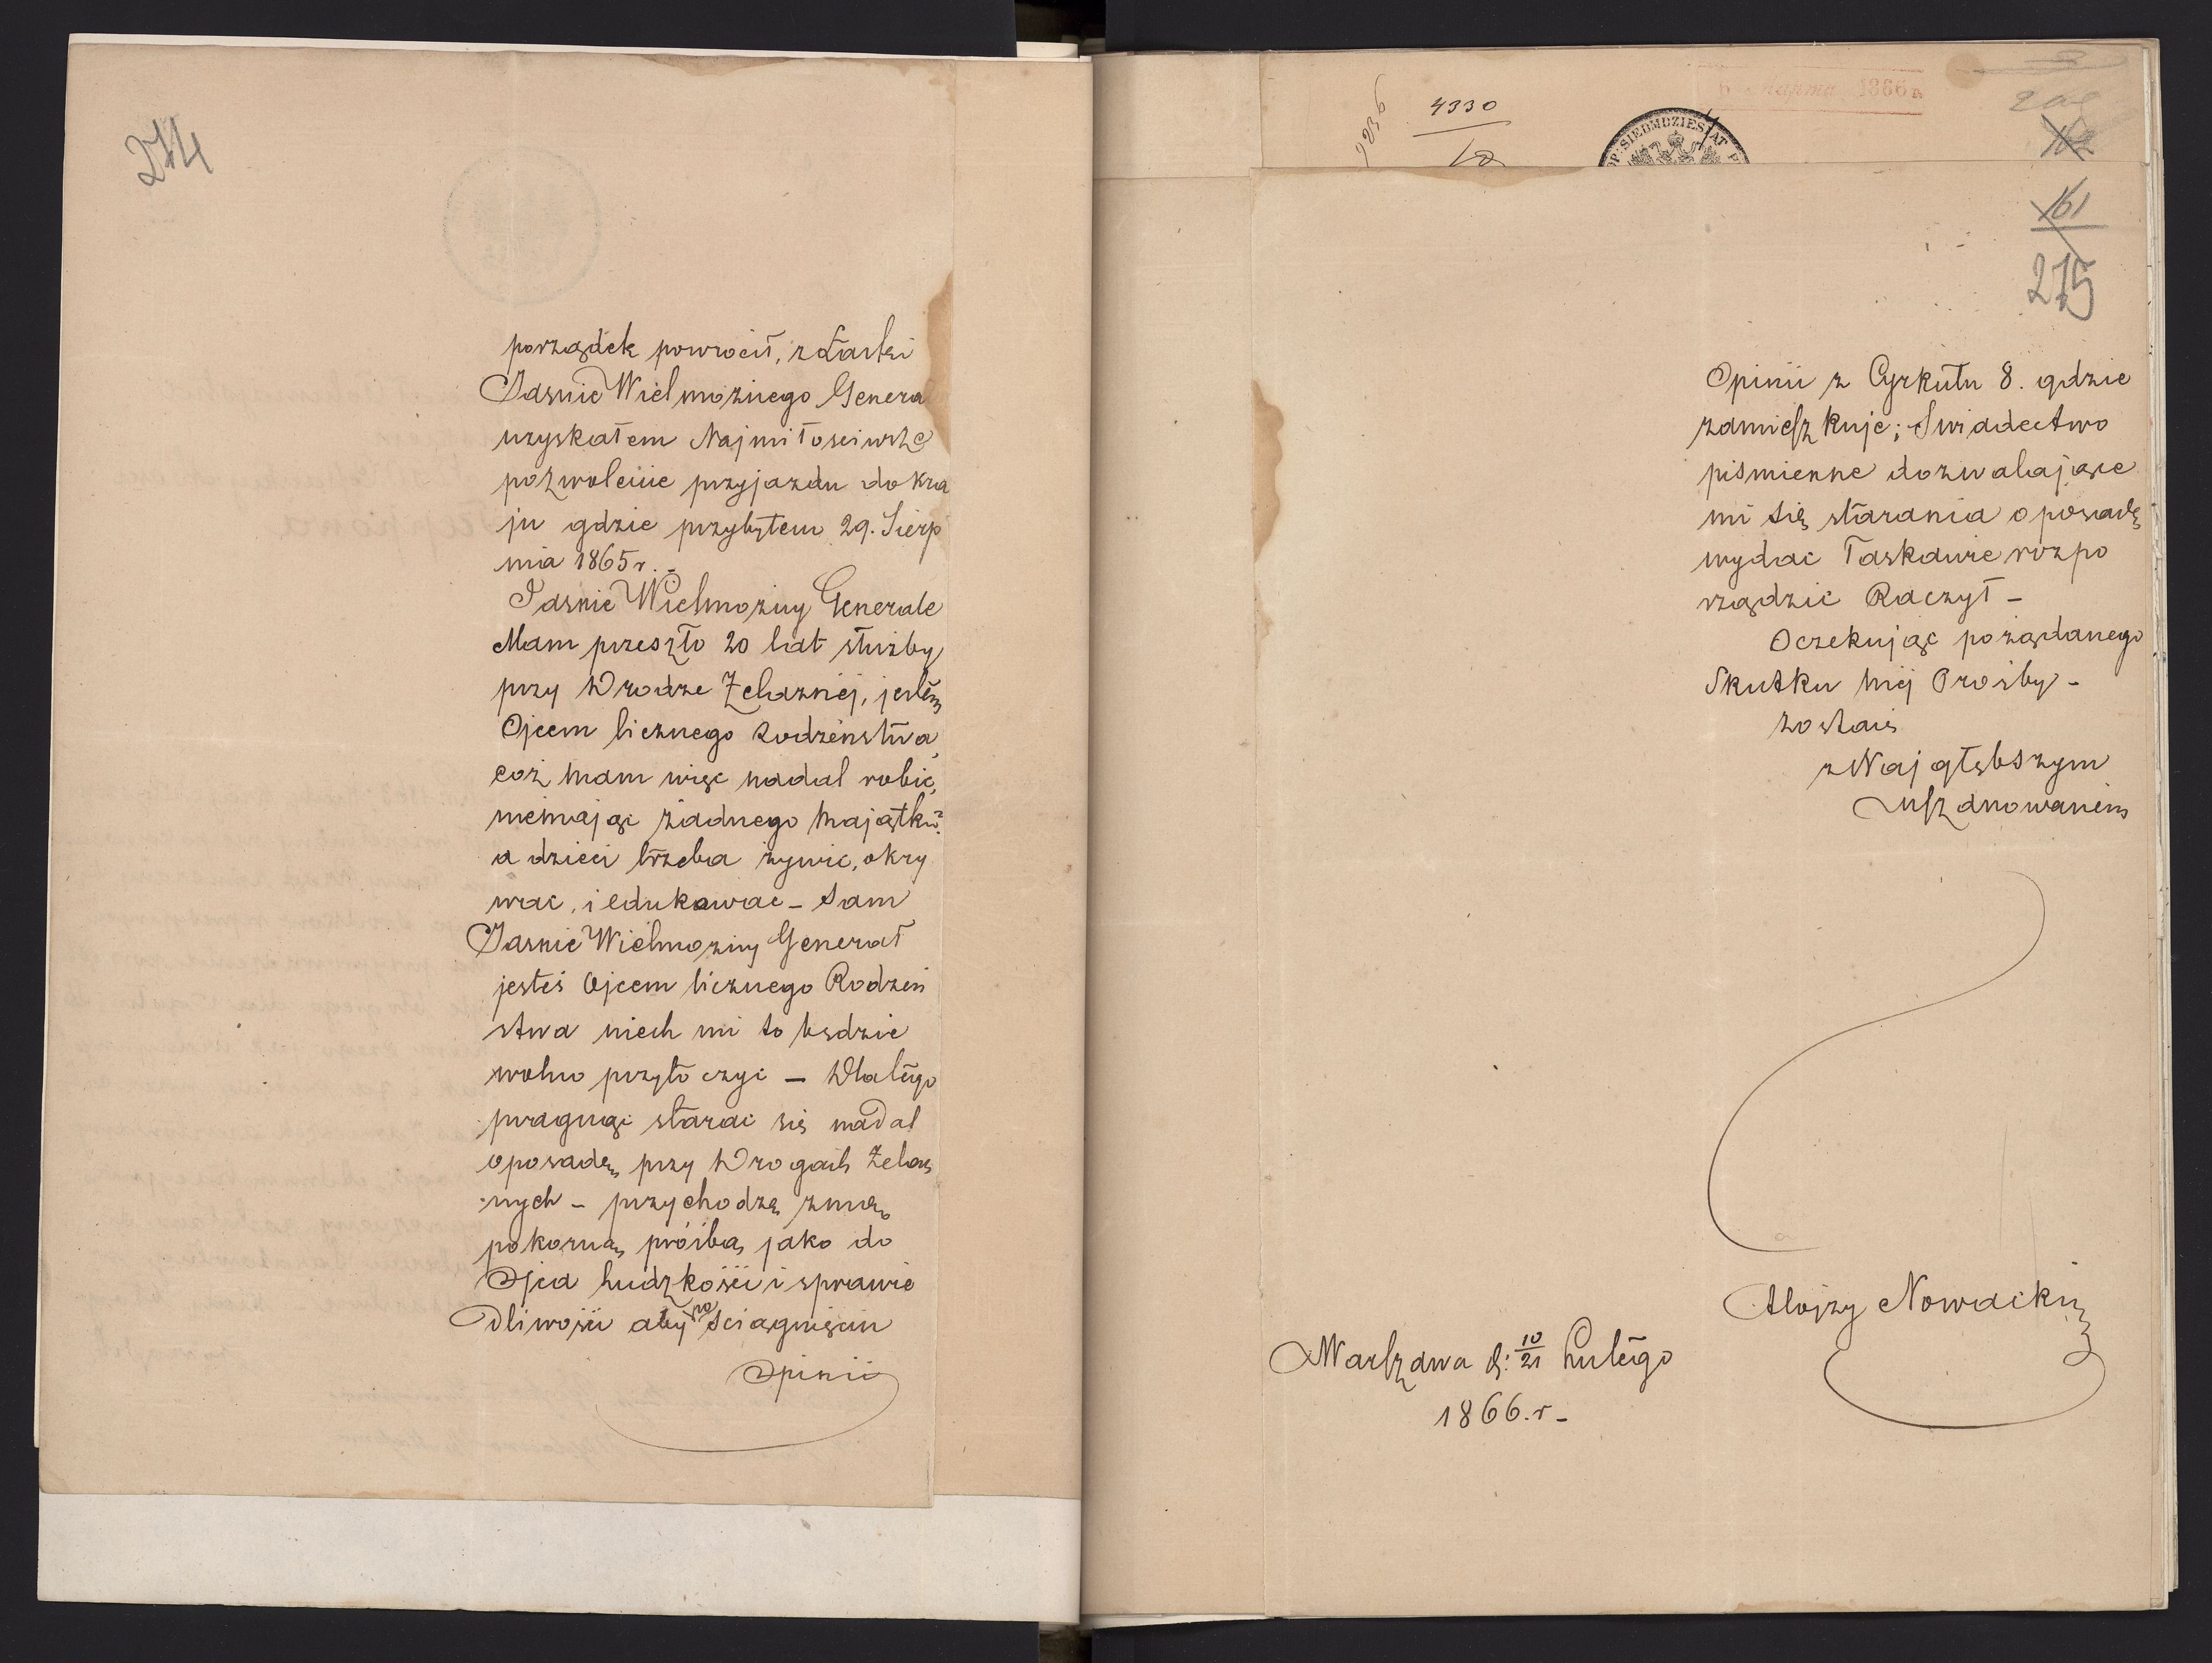 274
porządek powrócił, z Łaski
Jaśnie Wielmożnego Genera
uzyskałem Najmiłościwsze
pozwolenie przyjazdu do kra
ju gdzie przybyłem 29. Sierp
nia 1865 r. -
Jaśnie Wielmożny Generale
Mam przeszło 20 lat służby
przy Drodze Żelaznéj, jestem
Ojcem licznego Rodzeństwa,
cóż mam więc nadal robić,
niemając żadnego Majątku?
a dzieci trzeba żywić, okry
wać, i edukować - Sam
Jaśnie Wielmożny Generał
jesteś Ojcem licznego Rodzeń
stwa niech mi to będzie
wolno przytoczyć - Dlatego
pragnąc starać się nadal
o posadę, przy Drogach Żelaz
nych - przychodzę z mą
pokorną, prośbą, jako do
Ojca Ludzkości i sprawie
dliwości aby po ściągnięciu
Opinii
9236
4330
10
SIEDMDZIESIĄT
6 Марта 1866
208
162
161
275
Opinii z Cyrkułu 8. gdzie
zamieszkuję; Świadectwo
piśmienne dozwalające
mi się starania o posadę
wydać Łaskawie rozpo
rządzić Raczył -
Oczekując pożądanego
Skutku mej Prośby -
zostaję
z Najgłębszym
Uszanowaniem
Aloizy Nowacki
Warszawa d: 10/21 Lutego
1866. r -